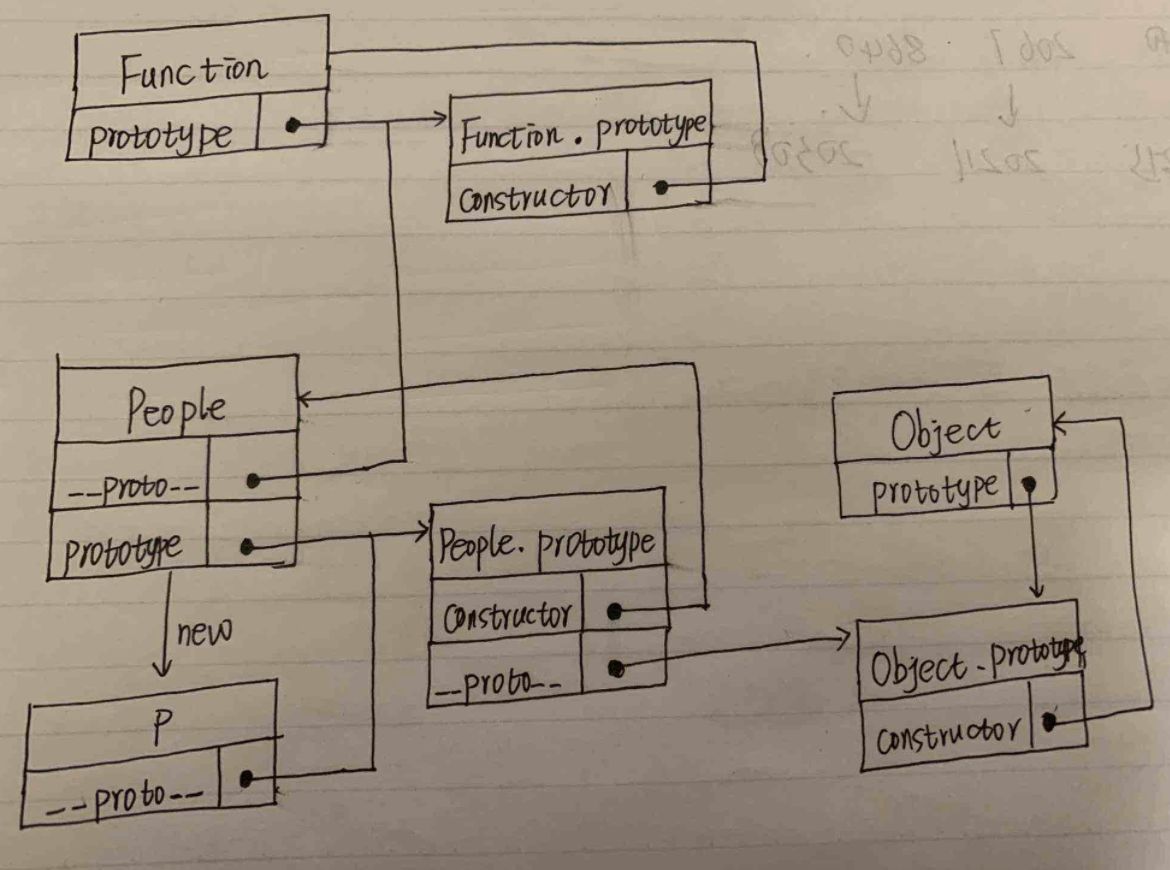 Function
prototype
Function.prototype
constructor
People
--proto--
prototype
new
P
--proto--
People.prototype
constructor
--proto--
Object
prototype
Object.prototype
constructor